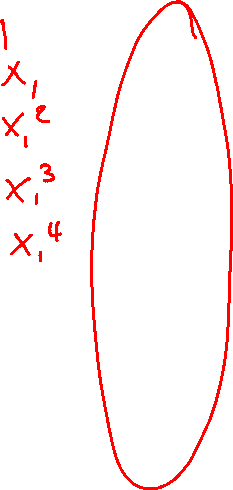 1
x₁
x₁²
x₁³
x₁⁴